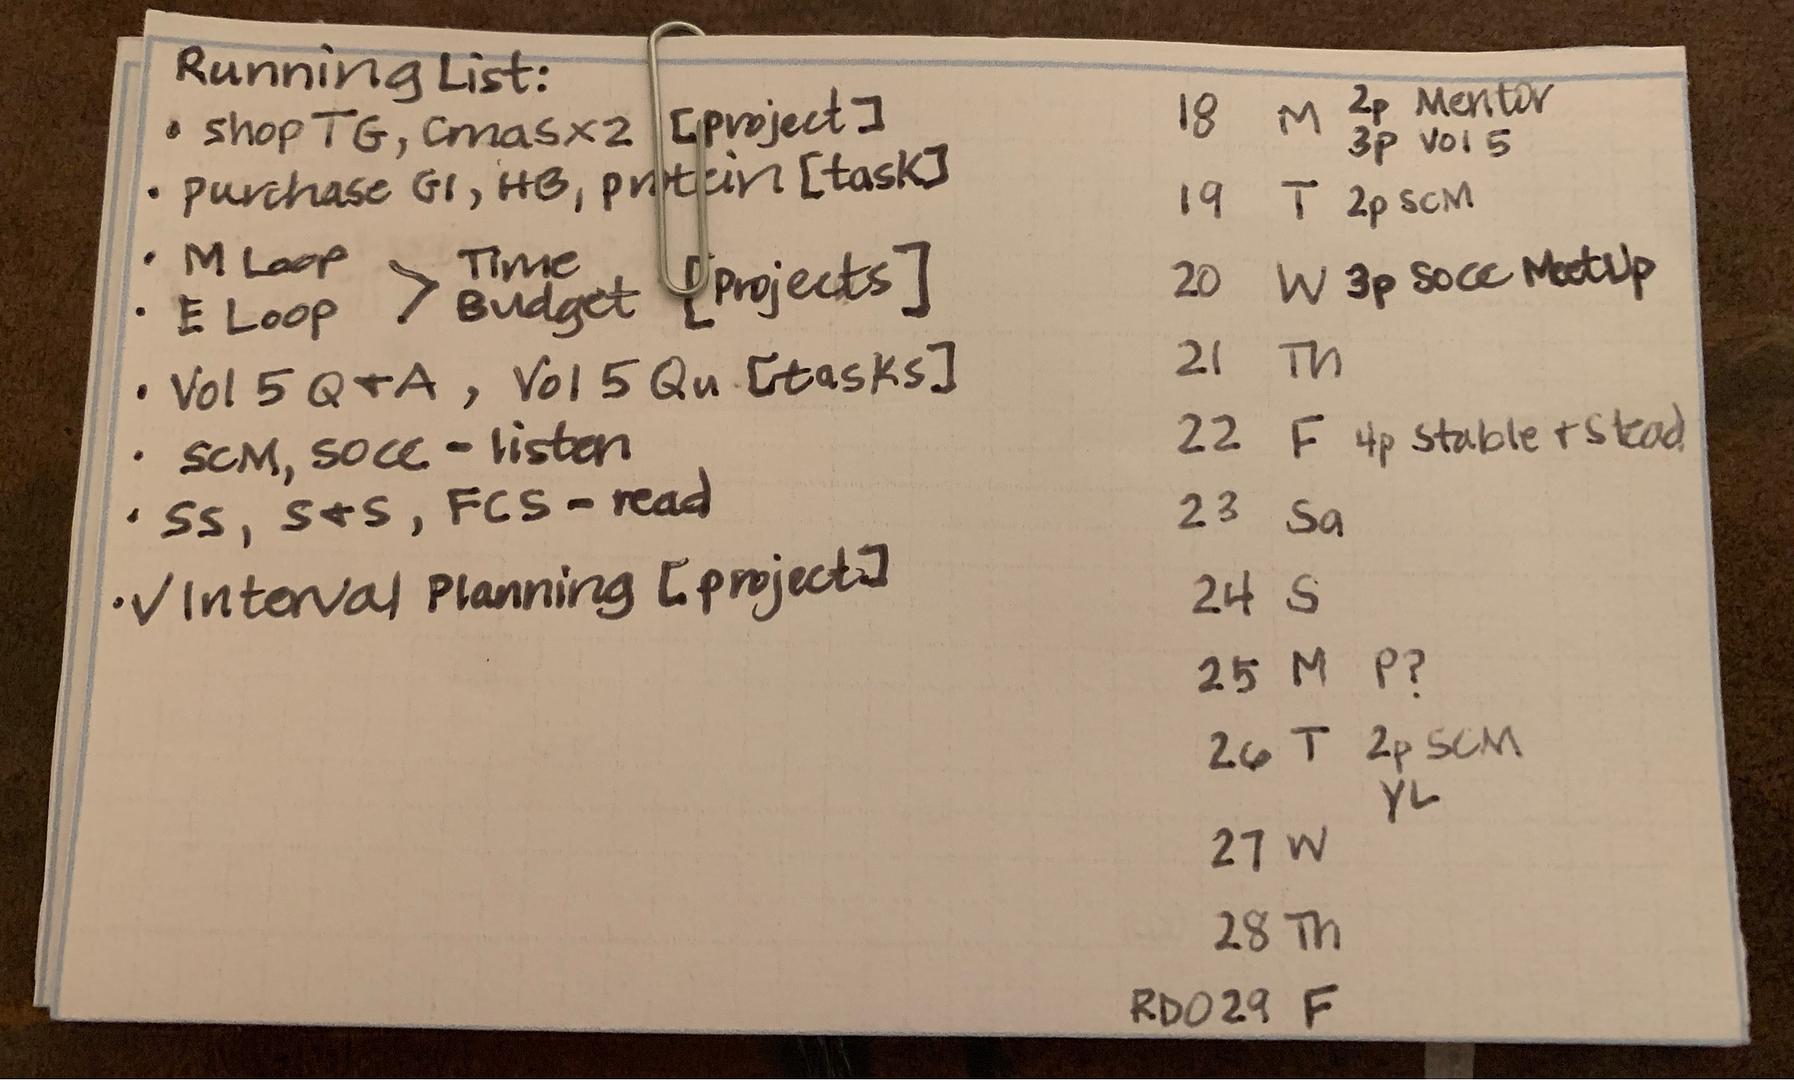 Running List:
• shop TG, Cmas x2 [project]
• purchase GI, HB, protein [task]
• M Loop > Time Budget [projects]
• E Loop
• Vol 5 Q+A, Vol 5 Qu. [tasks]
• SCM, SOCC - listen
• SS, S+S, FCS - read
• ✓ Interval Planning [project]
18 M 2p Mentor
3p Vol 5
19 T 2p SCM
20 W 3p SOCC MeetUp
21 Th
22 F 4p Stable + Stead
23 Sa
24 S
25 M P?
26 T 2p SCM
YL
27 W
28 Th
RDO 29 F